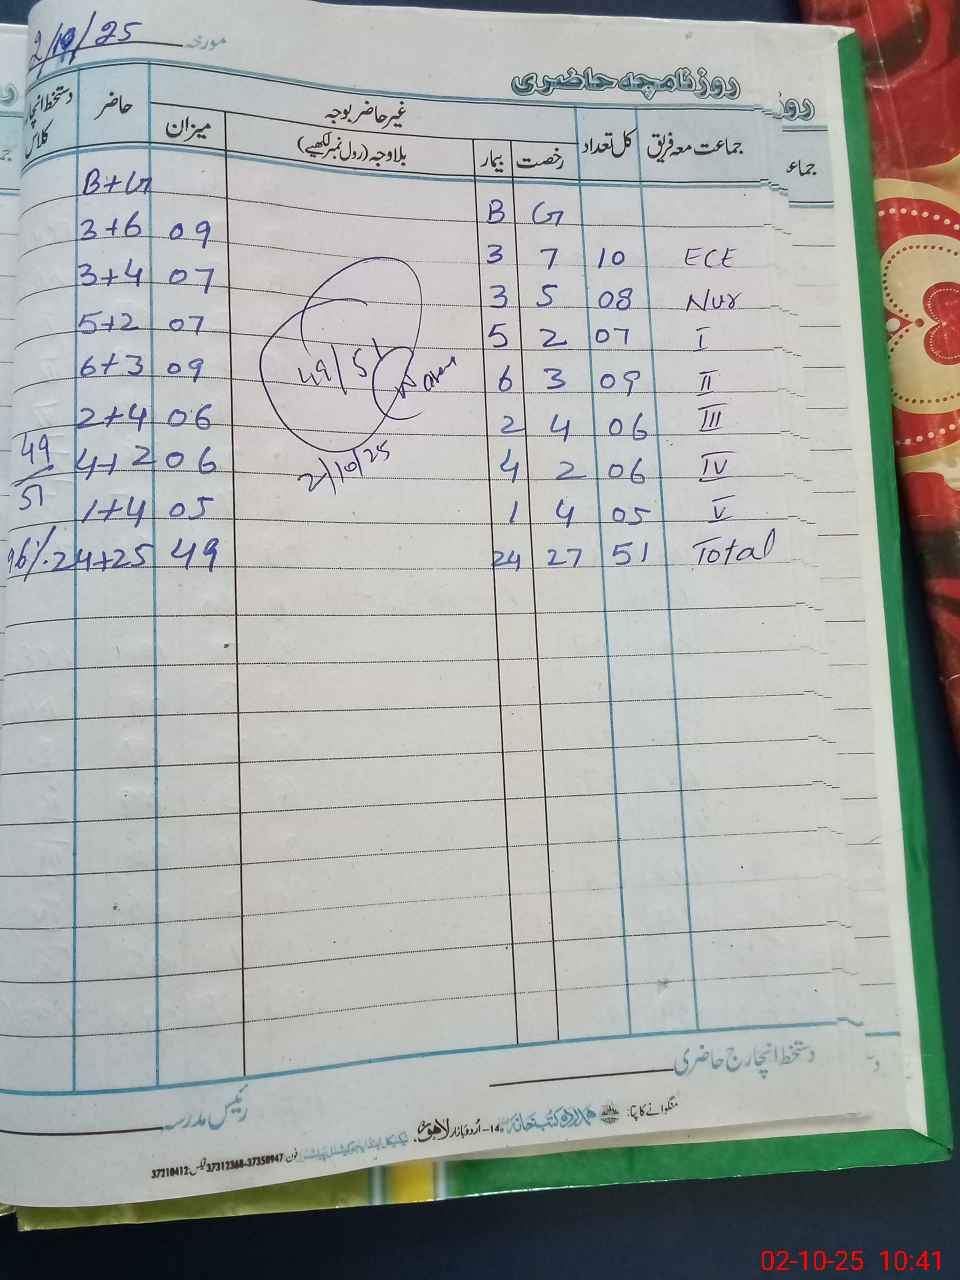 2/10/25 مورخہ
روزنامچہ حاضری
جماعت معہ فریق کل تعداد غیر حاضر بوجہ حاضر دستخط انچارج کلاس
رخصت بیمار بلاوجہ (رول نمبر لکھیے) میزان
B+G B G
3+6 09 3 7 10 ECE
3+4 07 3 5 08 Nur
5+2 07 5 2 07 I
6+3 09 6 3 09 II
2+4 06 2 4 06 III
4+2 06 4 2 06 IV
1+4 05 1 4 05 V
96%. 24+25 49 24 27 51 Total
49/51
49/51
2/10/25
دستخط انچارج حاضری
رئیس مدرسہ
منگوانے کا پتا: ہمدرد کتب خانہ 14-اُردو بازار لاہور
فون 37350947-37312368 فیکس 37210412
روز
جماع
02-10-25 10:41